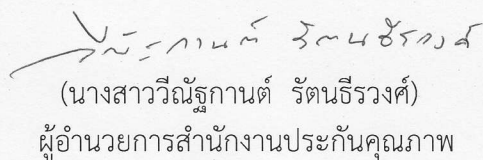 วีณัฐกานต์ รัตนธีรวงศ์
(นางสาววีณัฐกานต์ รัตนธีรวงศ์)
ผู้อำนวยการสำนักงานประกันคุณภาพ